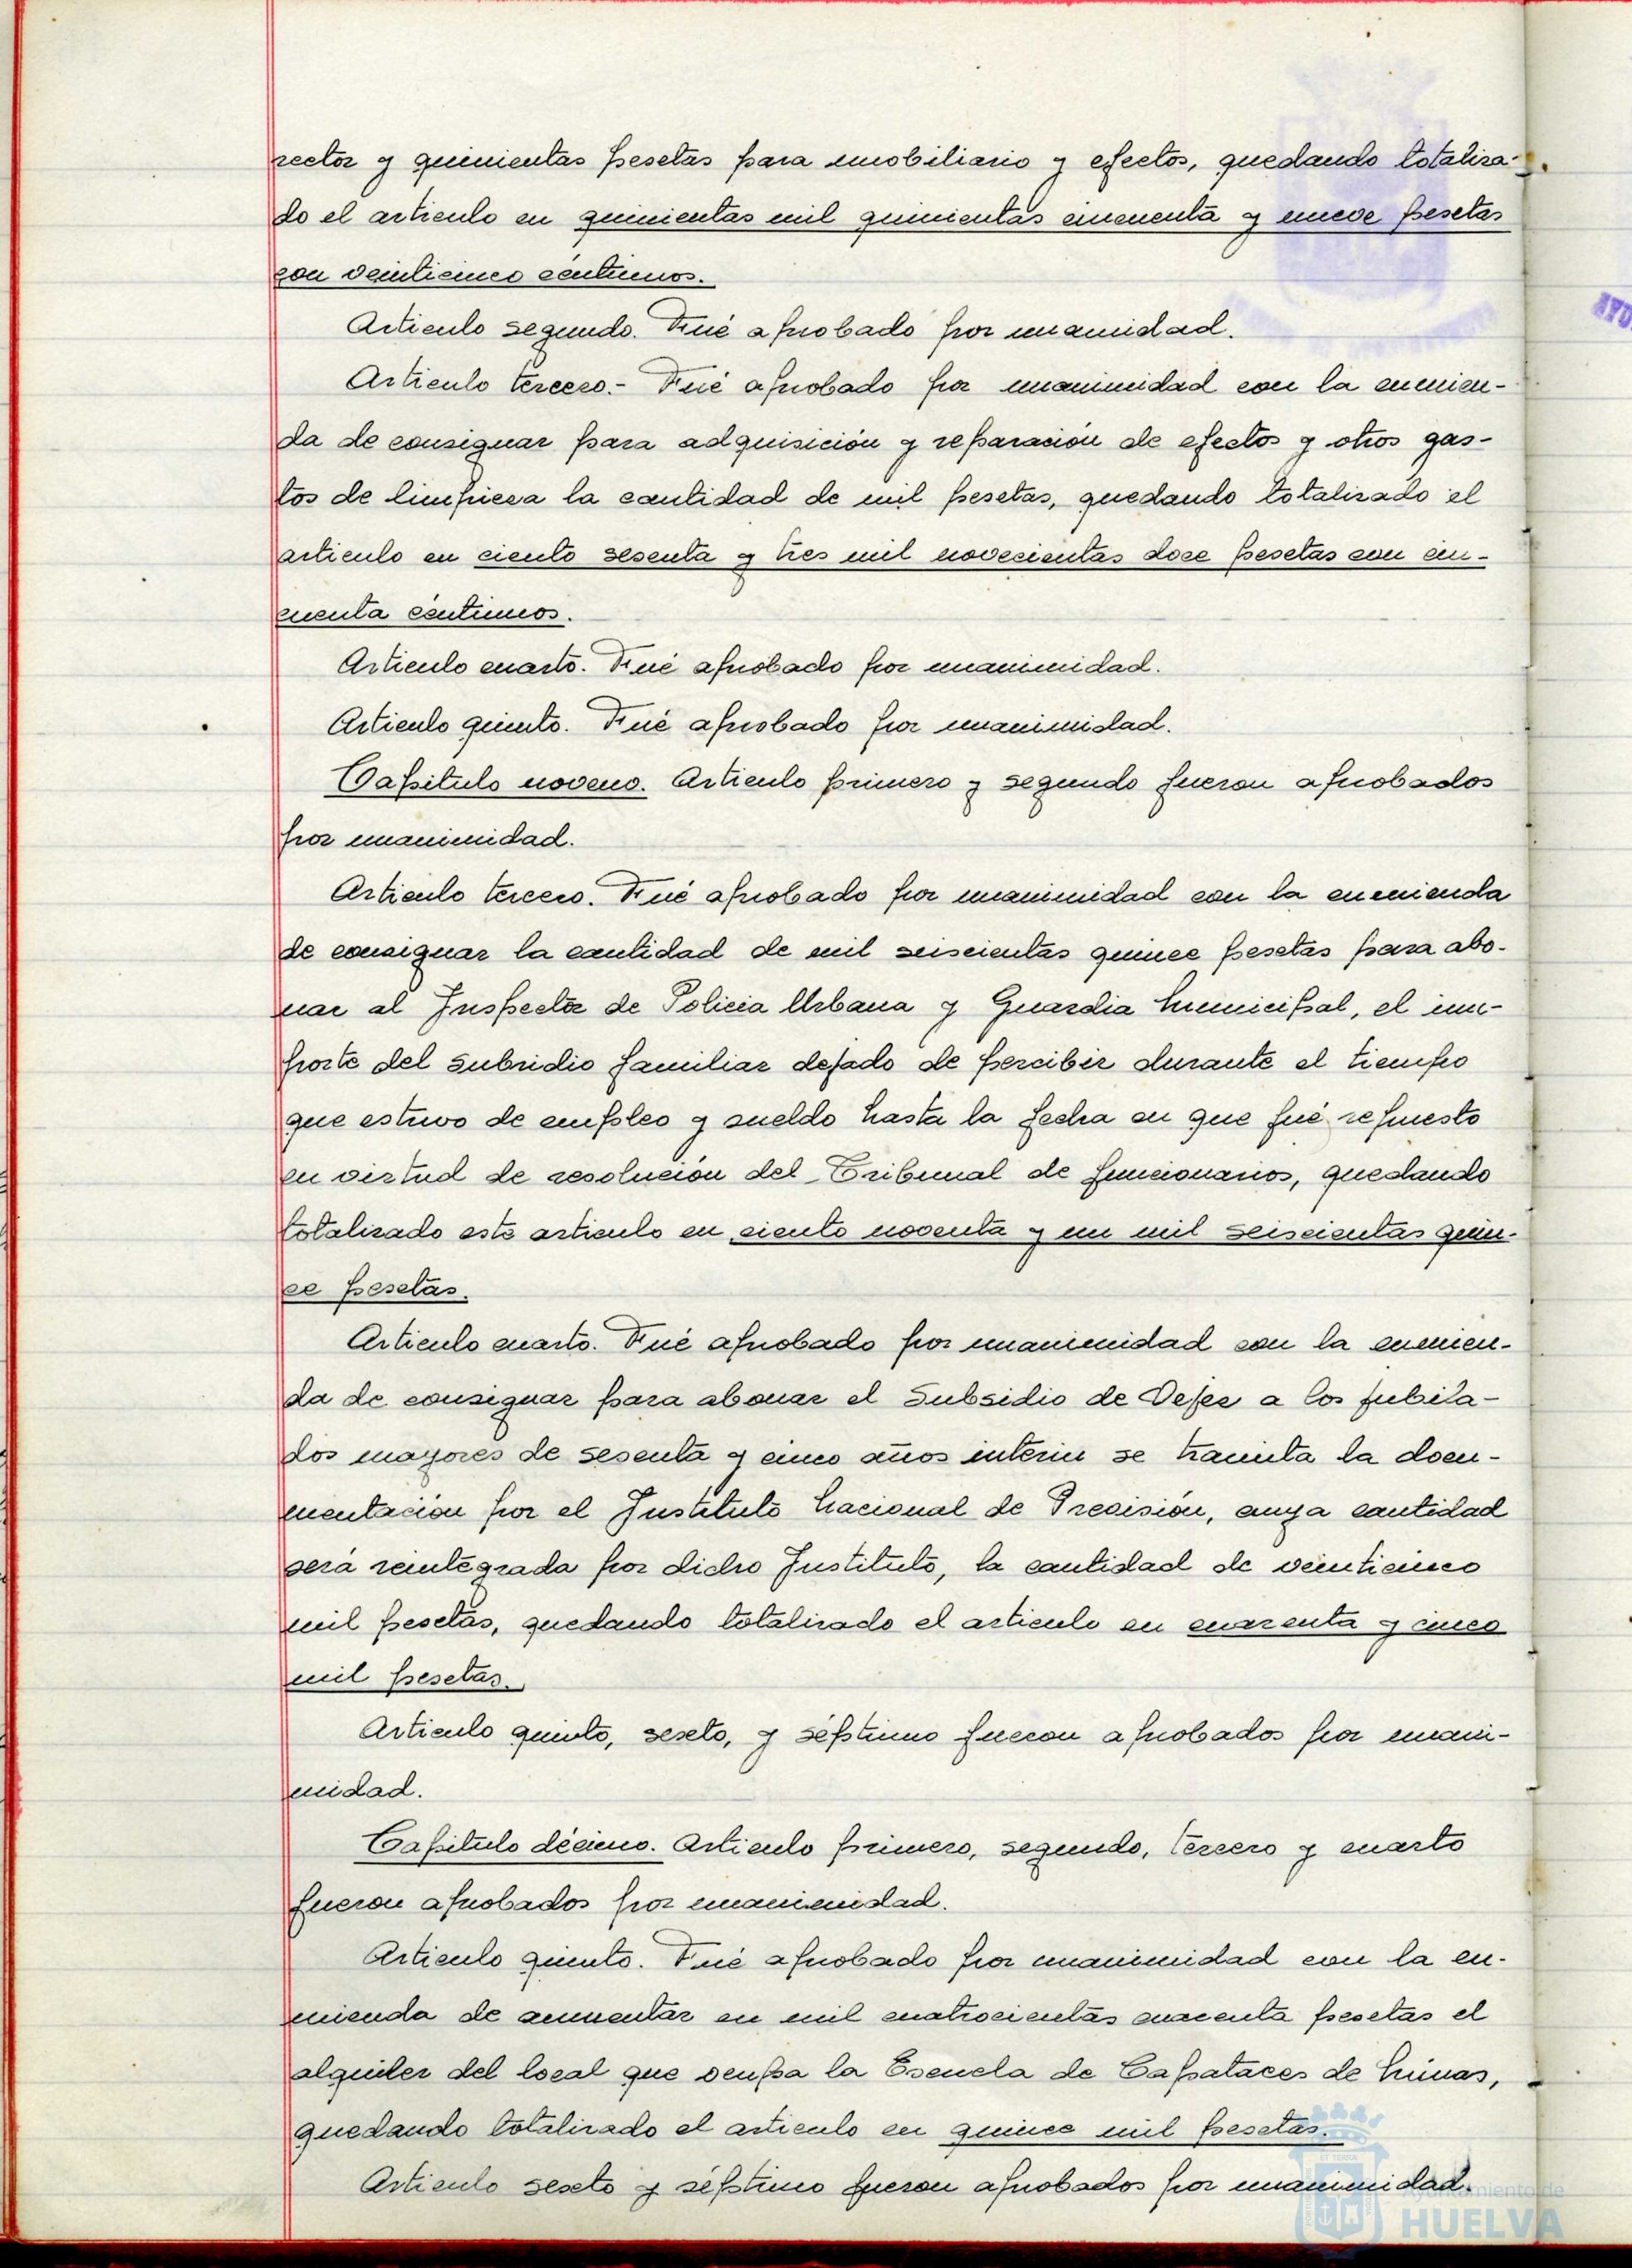 rector y quinientas pesetas para mobiliario y efectos, quedando totaliza-
do el articulo en quinientas mil quinientas cincuenta y nueve pesetas
con veinticinco céntimos.
Articulo segundo. Fué aprobado por unamidad.
Articulo tercero.- Fué aprobado por unanimidad con la enmien-
da de consignar para adquisición y reparación de efectos y otros gas-
tos de limpieza la cantidad de mil pesetas, quedando totalizado el
articulo en ciento sesenta y tres mil novecientas doce pesetas con cin-
cuenta céntimos.
Articulo cuarto. Fué aprobado por unanimidad.
Articulo quinto. Fué aprobado por unanimidad.
Capitulo noveno. Articulo primero y segundo fueron aprobados
por unanimidad.
Articulo tercero. Fué aprobado por unanimidad con la enmienda
de consignar la cantidad de mil seiscientas quince pesetas para abo-
nar al Inspector de Policia Urbana y Guardia Municipal, el im-
porte del subsidio familiar dejado de percibir durante el tiempo
que estuvo de empleo y sueldo hasta la fecha en que fué repuesto
en virtud de resolución del Tribunal de funcionarios, quedando
totalizado este articulo en ciento noventa y un mil seiscientas quin-
ce pesetas.
Articulo cuarto. Fué aprobado por unanimidad con la enmien-
da de consignar para abonar el Subsidio de Vejez a los jubila-
dos mayores de sesenta y cinco años interin se tramita la docu-
mentación por el Instituto Nacional de Previsión, cuya cantidad
será reintegrada por dicho Instituto, la cantidad de veinticinco
mil pesetas, quedando totalizado el articulo en cuarenta y cinco
mil pesetas.
Articulo quinto, sexto, y séptimo fueron aprobados por unani-
midad.
Capitulo décimo. Articulo primero, segundo, tercero y cuarto
fueron aprobados por unanimidad.
Articulo quinto. Fué aprobado por unanimidad con la en-
mienda de aumentar en mil cuatrocientas cuarenta pesetas el
alquiler del local que ocupa la Escuela de Capataces de Minas,
quedando totalizado el articulo en quince mil pesetas.
Articulo sexto y séptimo fueron aprobados por unanimidad.
Ayuntamiento de
HUELVA